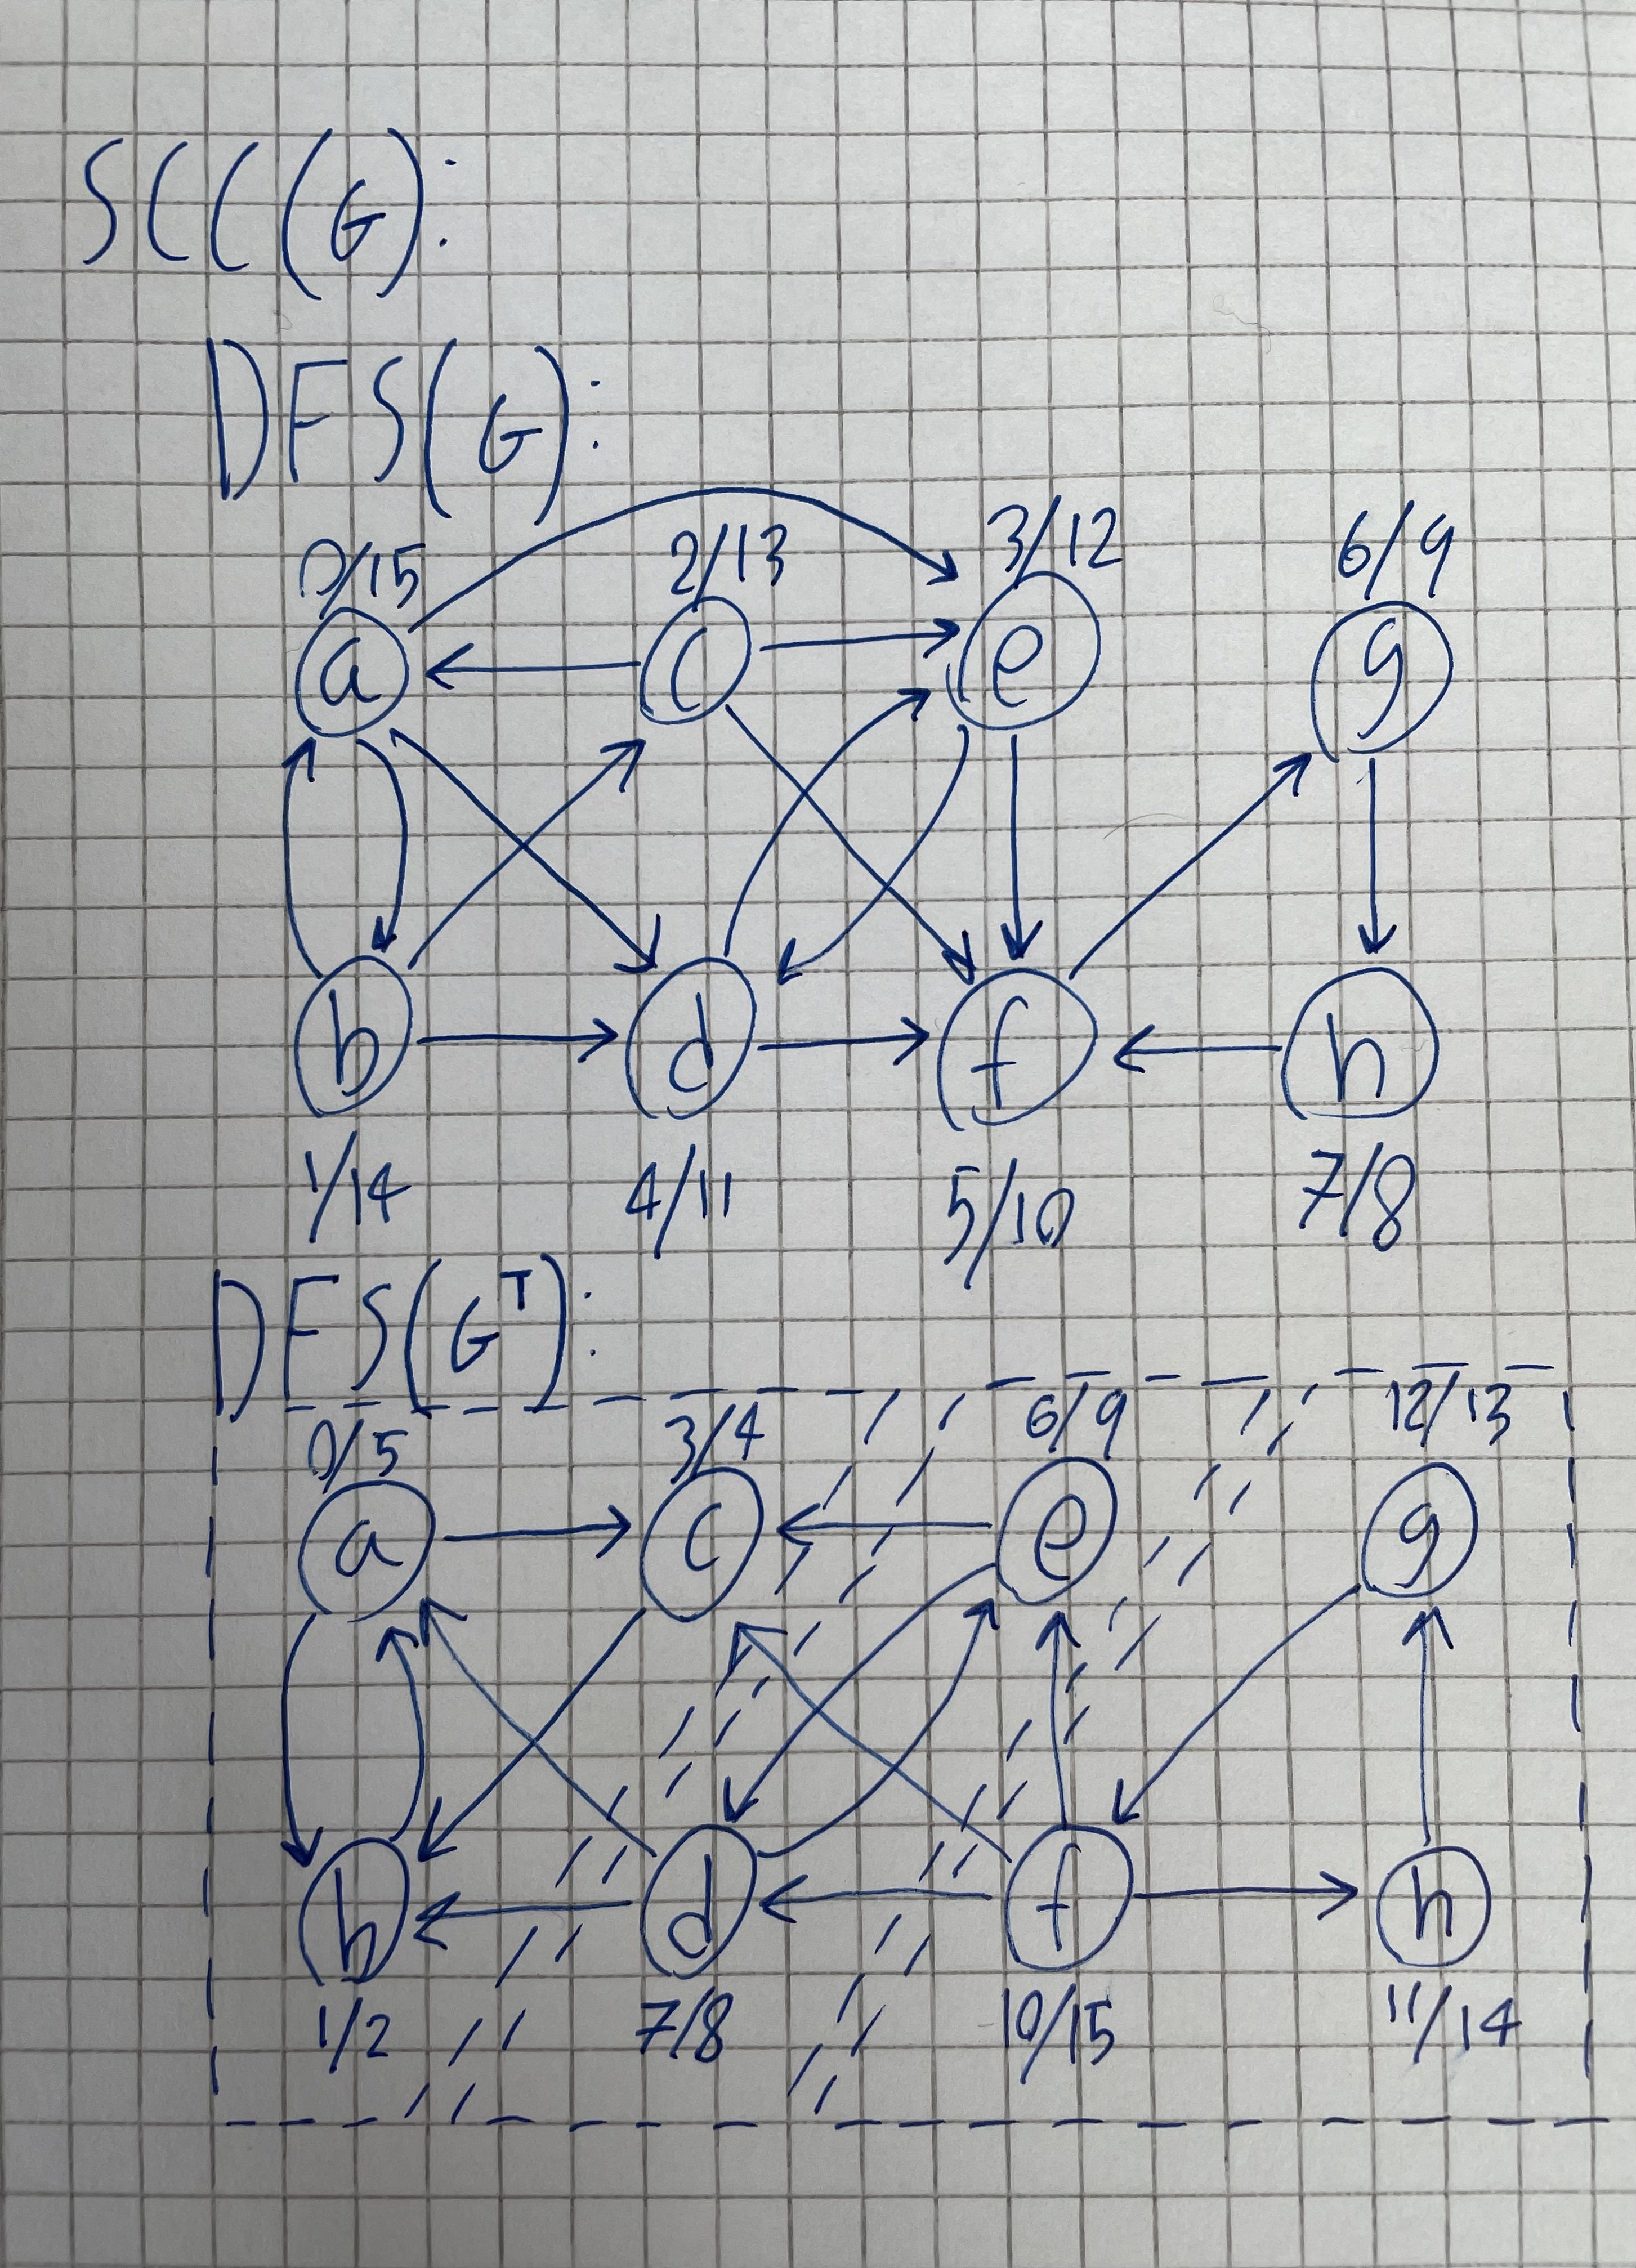 SCC(G):
DFS(G):
0/15 2/13 3/12 6/9
a c e g
b d f h
1/14 4/11 5/10 7/8
DFS(G^T):
0/5 3/4 6/9 12/13
a c e g
b d f h
1/2 7/8 10/15 11/14